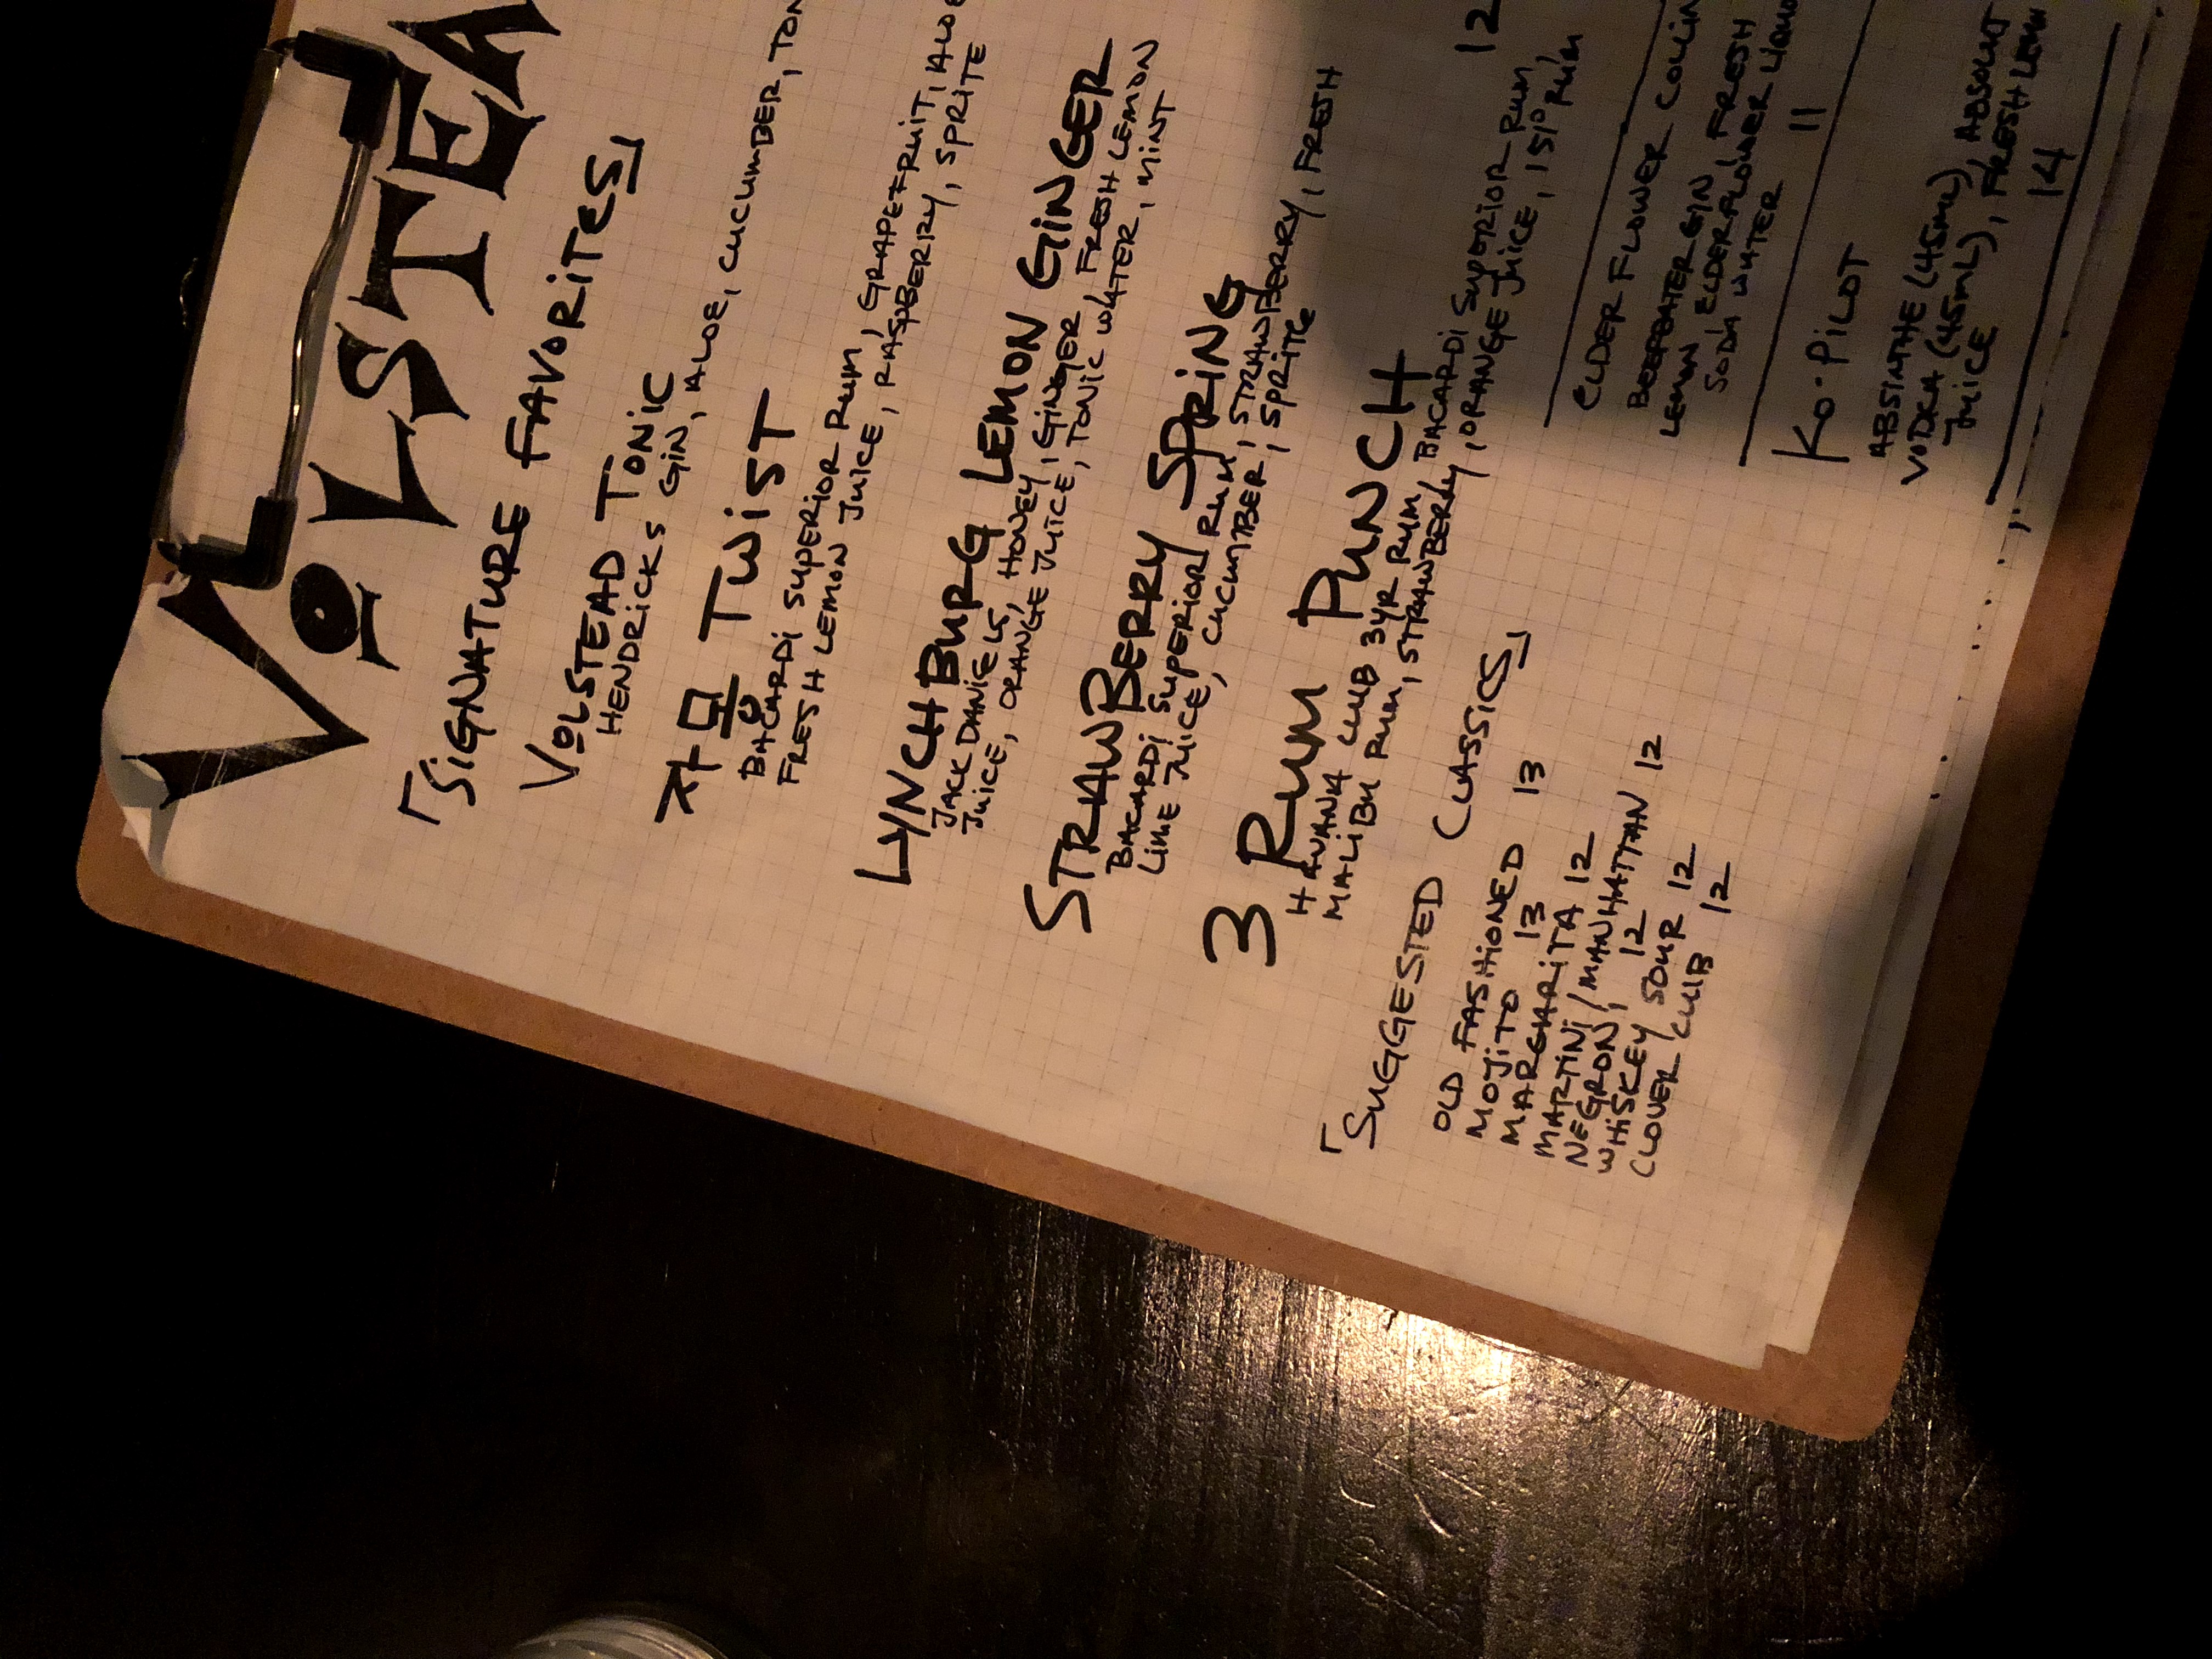 VOLSTEA
「SIGNATURE FAVORITES」
VOLSTEAD TONIC
HENDRICKS GIN, ALOE, CUCUMBER, TON
자몽 TWIST
BACARDI SUPERIOR RUM, GRAPEFRUIT, ALOE
FRESH LEMON JUICE, RASPBERRY, SPRITE
LYNCHBURG LEMON GINGER
JACK DANIELS, HONEY, GINGER, FRESH LEMON
JUICE, ORANGE JUICE, TONIC WATER, MINT
STRAWBERRY SPRING
BACARDI SUPERIOR RUM, STRAWBERRY, FRESH
LIME JUICE, CUCUMBER, SPRITE
3 RUM PUNCH 12
HAVANA CLUB 3YR RUM, BACARDI SUPERIOR RUM,
MALIBU RUM, STRAWBERRY, ORANGE JUICE, 151° RUM
「SUGGESTED CLASSICS」
OLD FASHIONED 13
MOJITO 13
MARGHARITA 12
MARTINI/MANHATTAN 12
NEGRONI 12
WHISKEY SOUR 12
CLOVER CLUB 12
ELDER FLOWER COLLIN
BEEFEATER GIN, FRESH
LEMON, ELDERFLOWER
SODA WATER 11
KO·PILOT
ABSINTHE (45ML), ABSOLUT
VODKA (45ML), FRESH LEM
JUICE 14